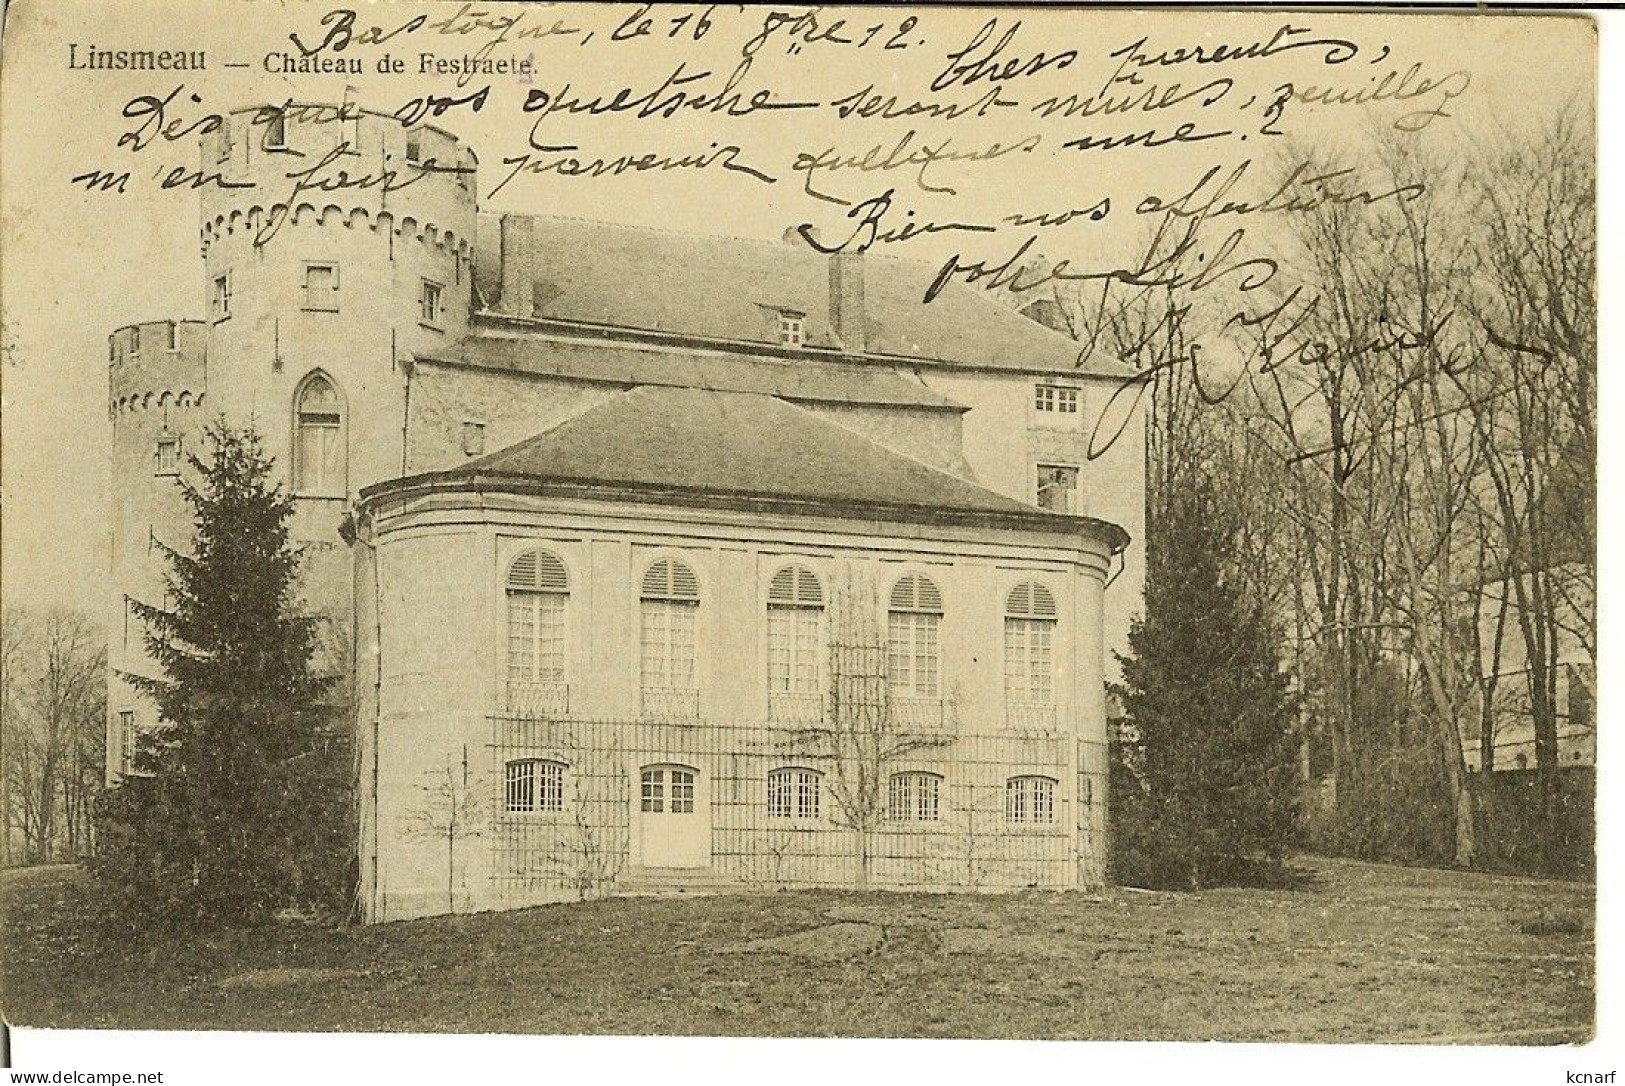 Bastogne, le 16 8bre 12.
Linsmeau — Château de Festraete.
Chers parents,
Dès que vos quetsche seront mûres, veuillez
m'en faire parvenir quelques une.?
Bien nos affections
votre fils
kcnarf
delcampe.net